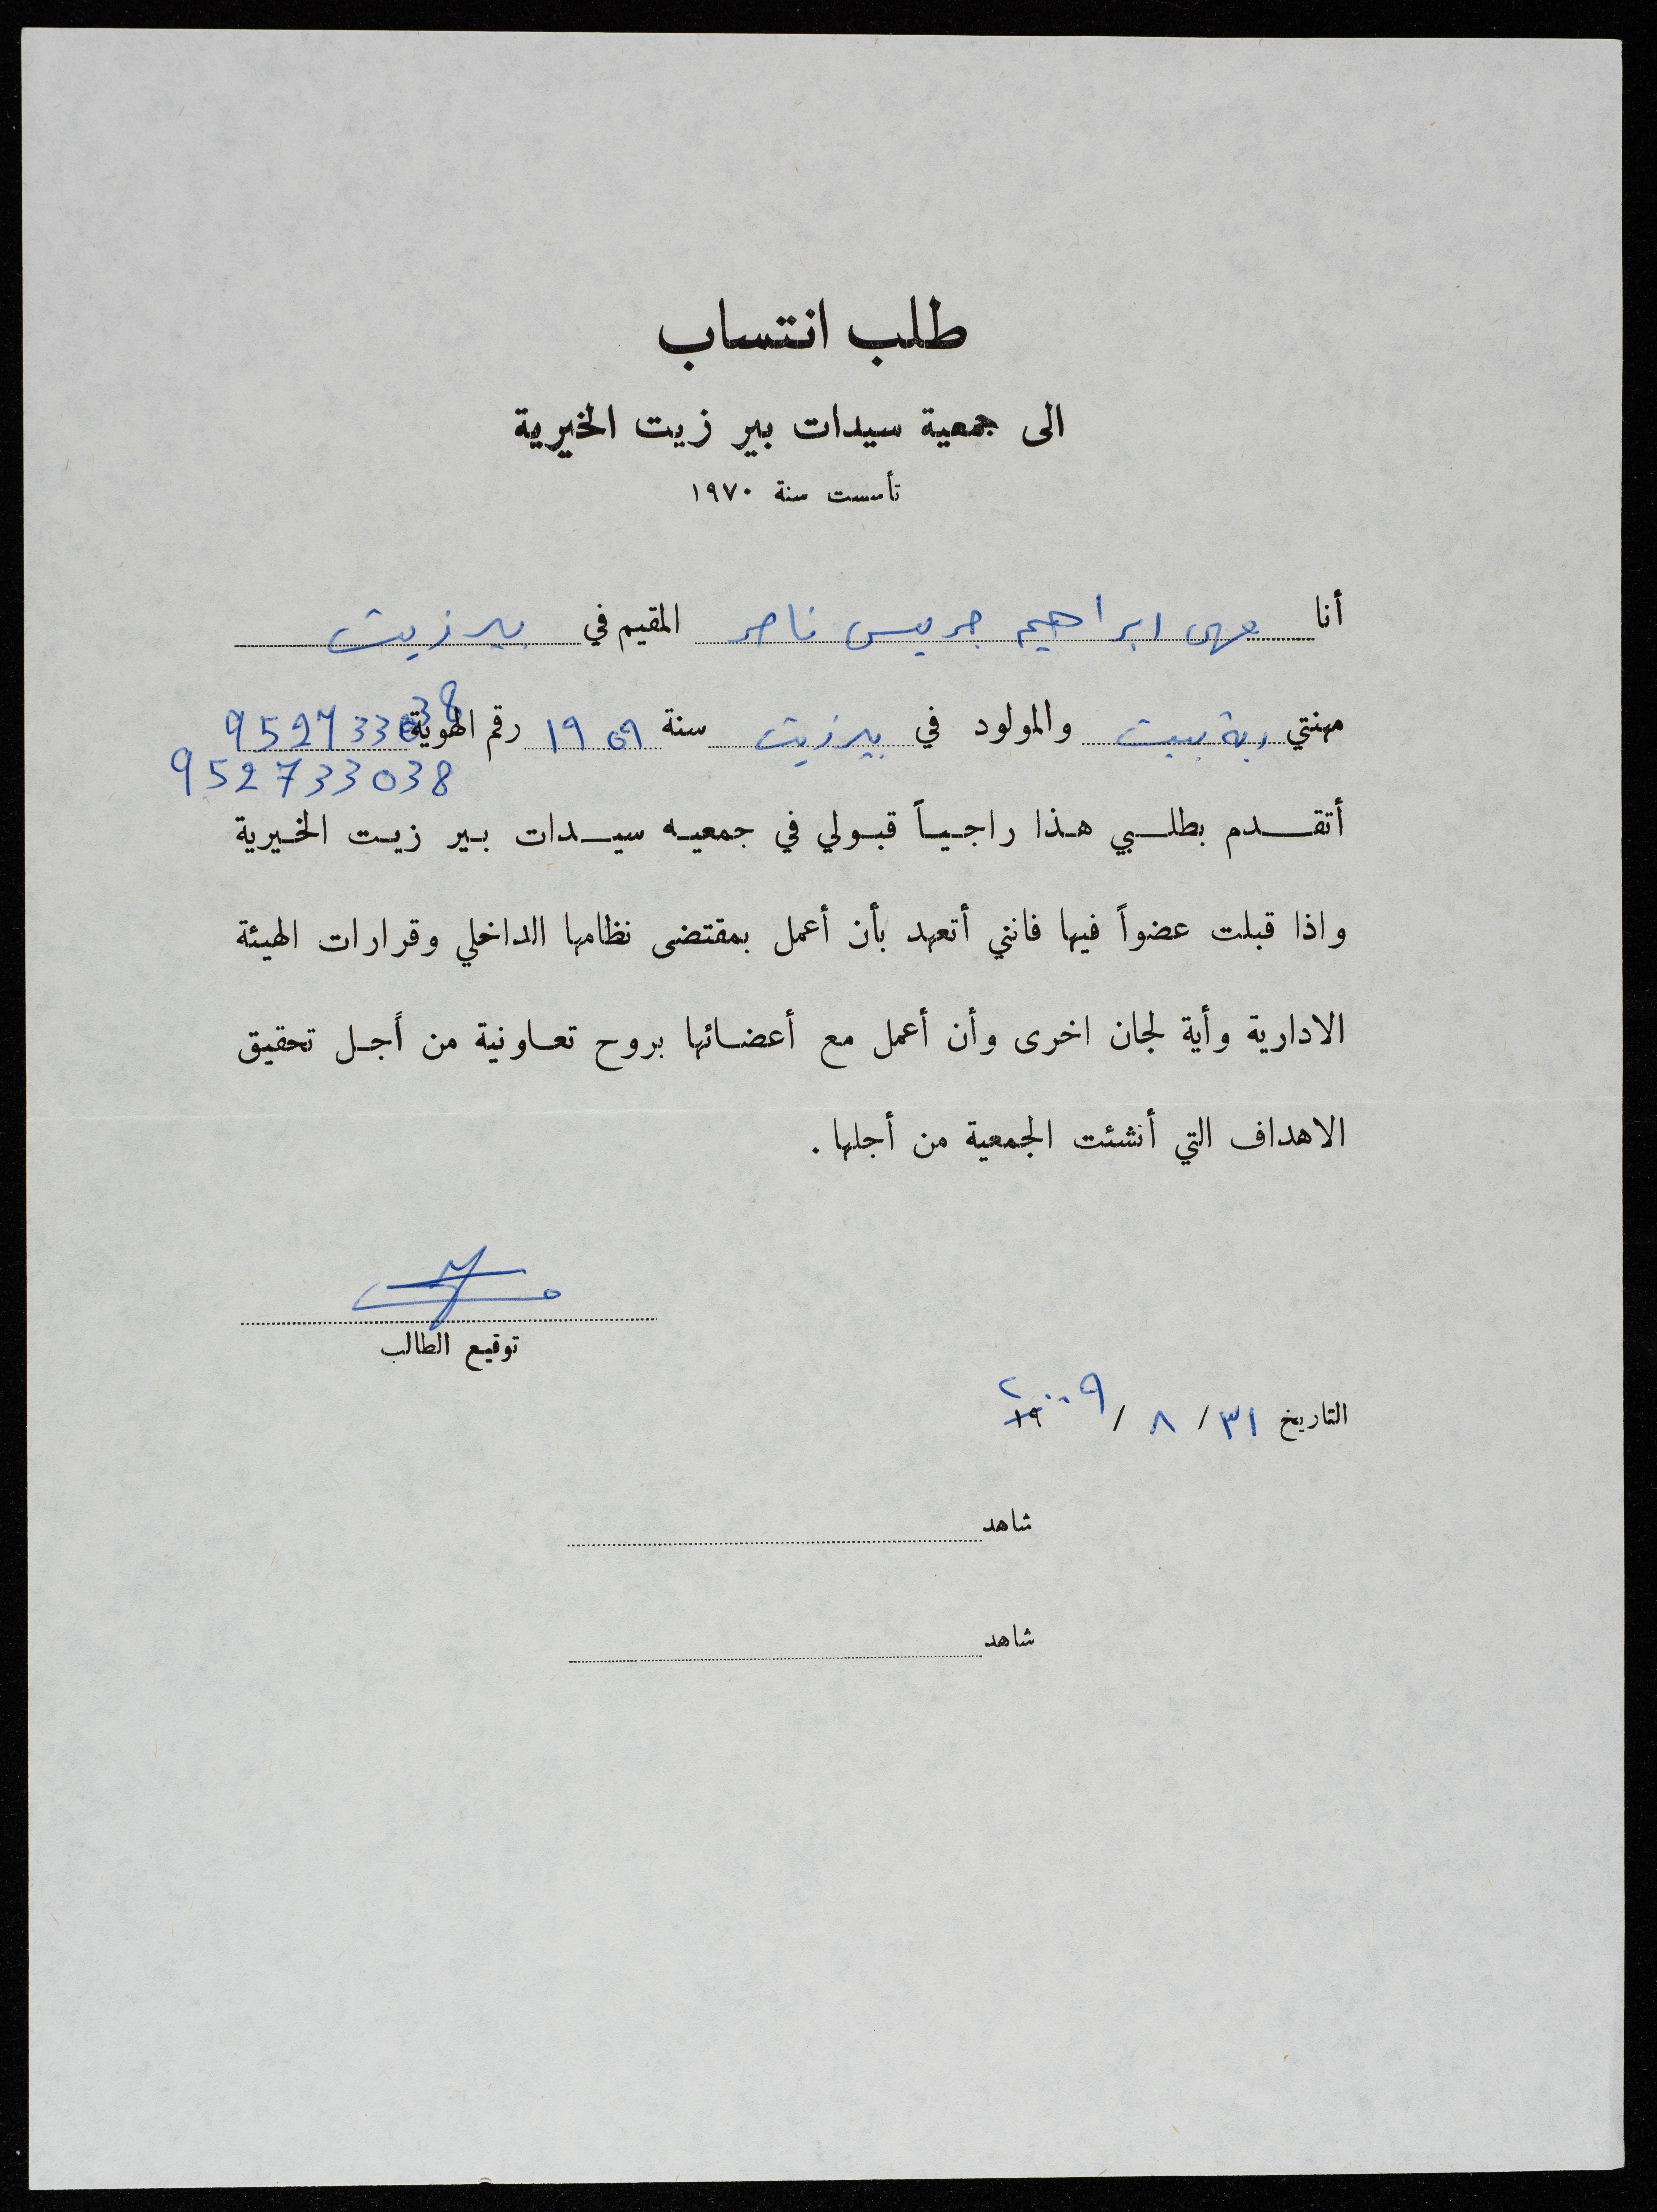 طلب انتساب
الى جمعية سيدات بير زيت الخيرية
تأسست سنة ١٩٧٠
أنا مهى ابراهيم جريس ناصر المقيم في بيرزيت
مهنتي ربة بيت والمولود في بيرزيت سنة ١٩٥٩ رقم الهوية 952733038
952733038
أتقدم بطلبي هذا راجياً قبولي في جمعيه سيدات بير زيت الخيرية
واذا قبلت عضواً فيها فانني أتعهد بأن أعمل بمقتضى نظامها الداخلي وقرارات الهيئة
الادارية وأية لجان اخرى وأن أعمل مع أعضائها بروح تعاونية من أجل تحقيق
الاهداف التي أنشئت الجمعية من أجلها .
توقيع الطالب
التاريخ ٣١ / ٨ / ٢٠٠٩ ١٩
شاهد
شاهد